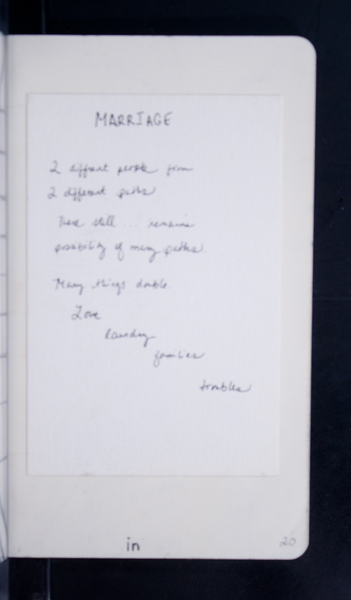 MARRIAGE
2 different people from
2 different paths
There still... remains
possibility of many paths.
Many things double.
Love
laundry
families
troubles
in
20